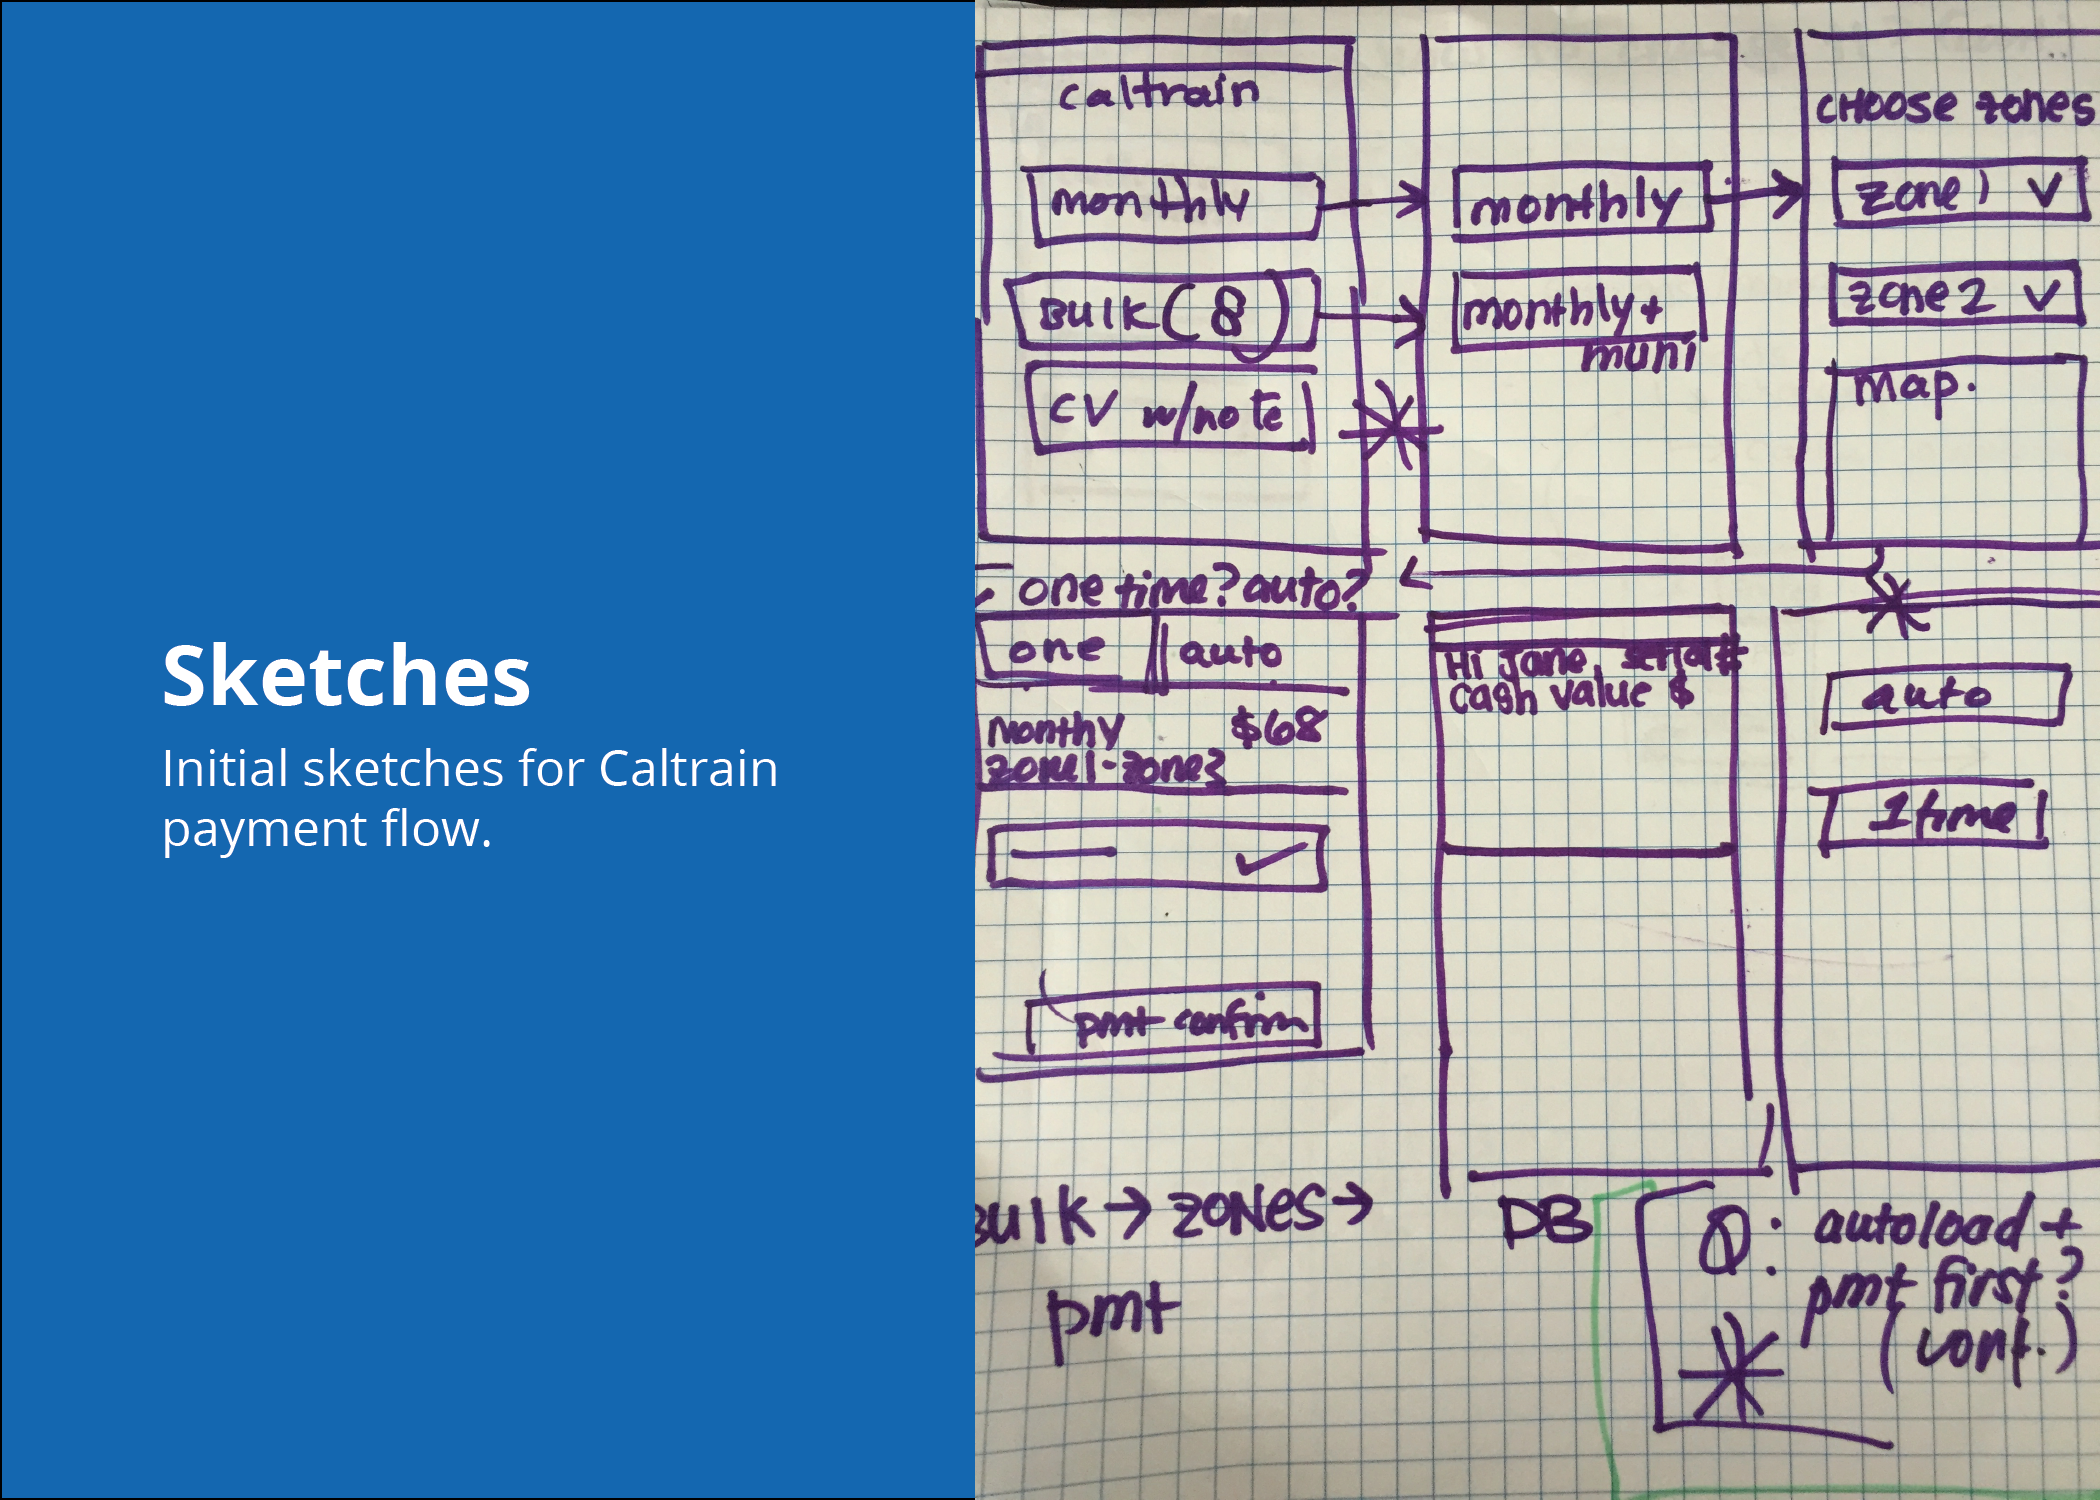 Sketches
Initial sketches for Caltrain
payment flow.
caltrain
monthly
BULK (8)
CV w/note
monthly
monthly+
muni
CHOOSE zones
zone 1 V
zone 2 V
Map.
one time? auto?
one
auto
Monthy $68
zone1-zone3
pmt confirm
Hi Jane,
cash value $
auto
1 time
BULK → ZONES →
pmt
DB
Q: autoload +
pmt first?
(conf.)